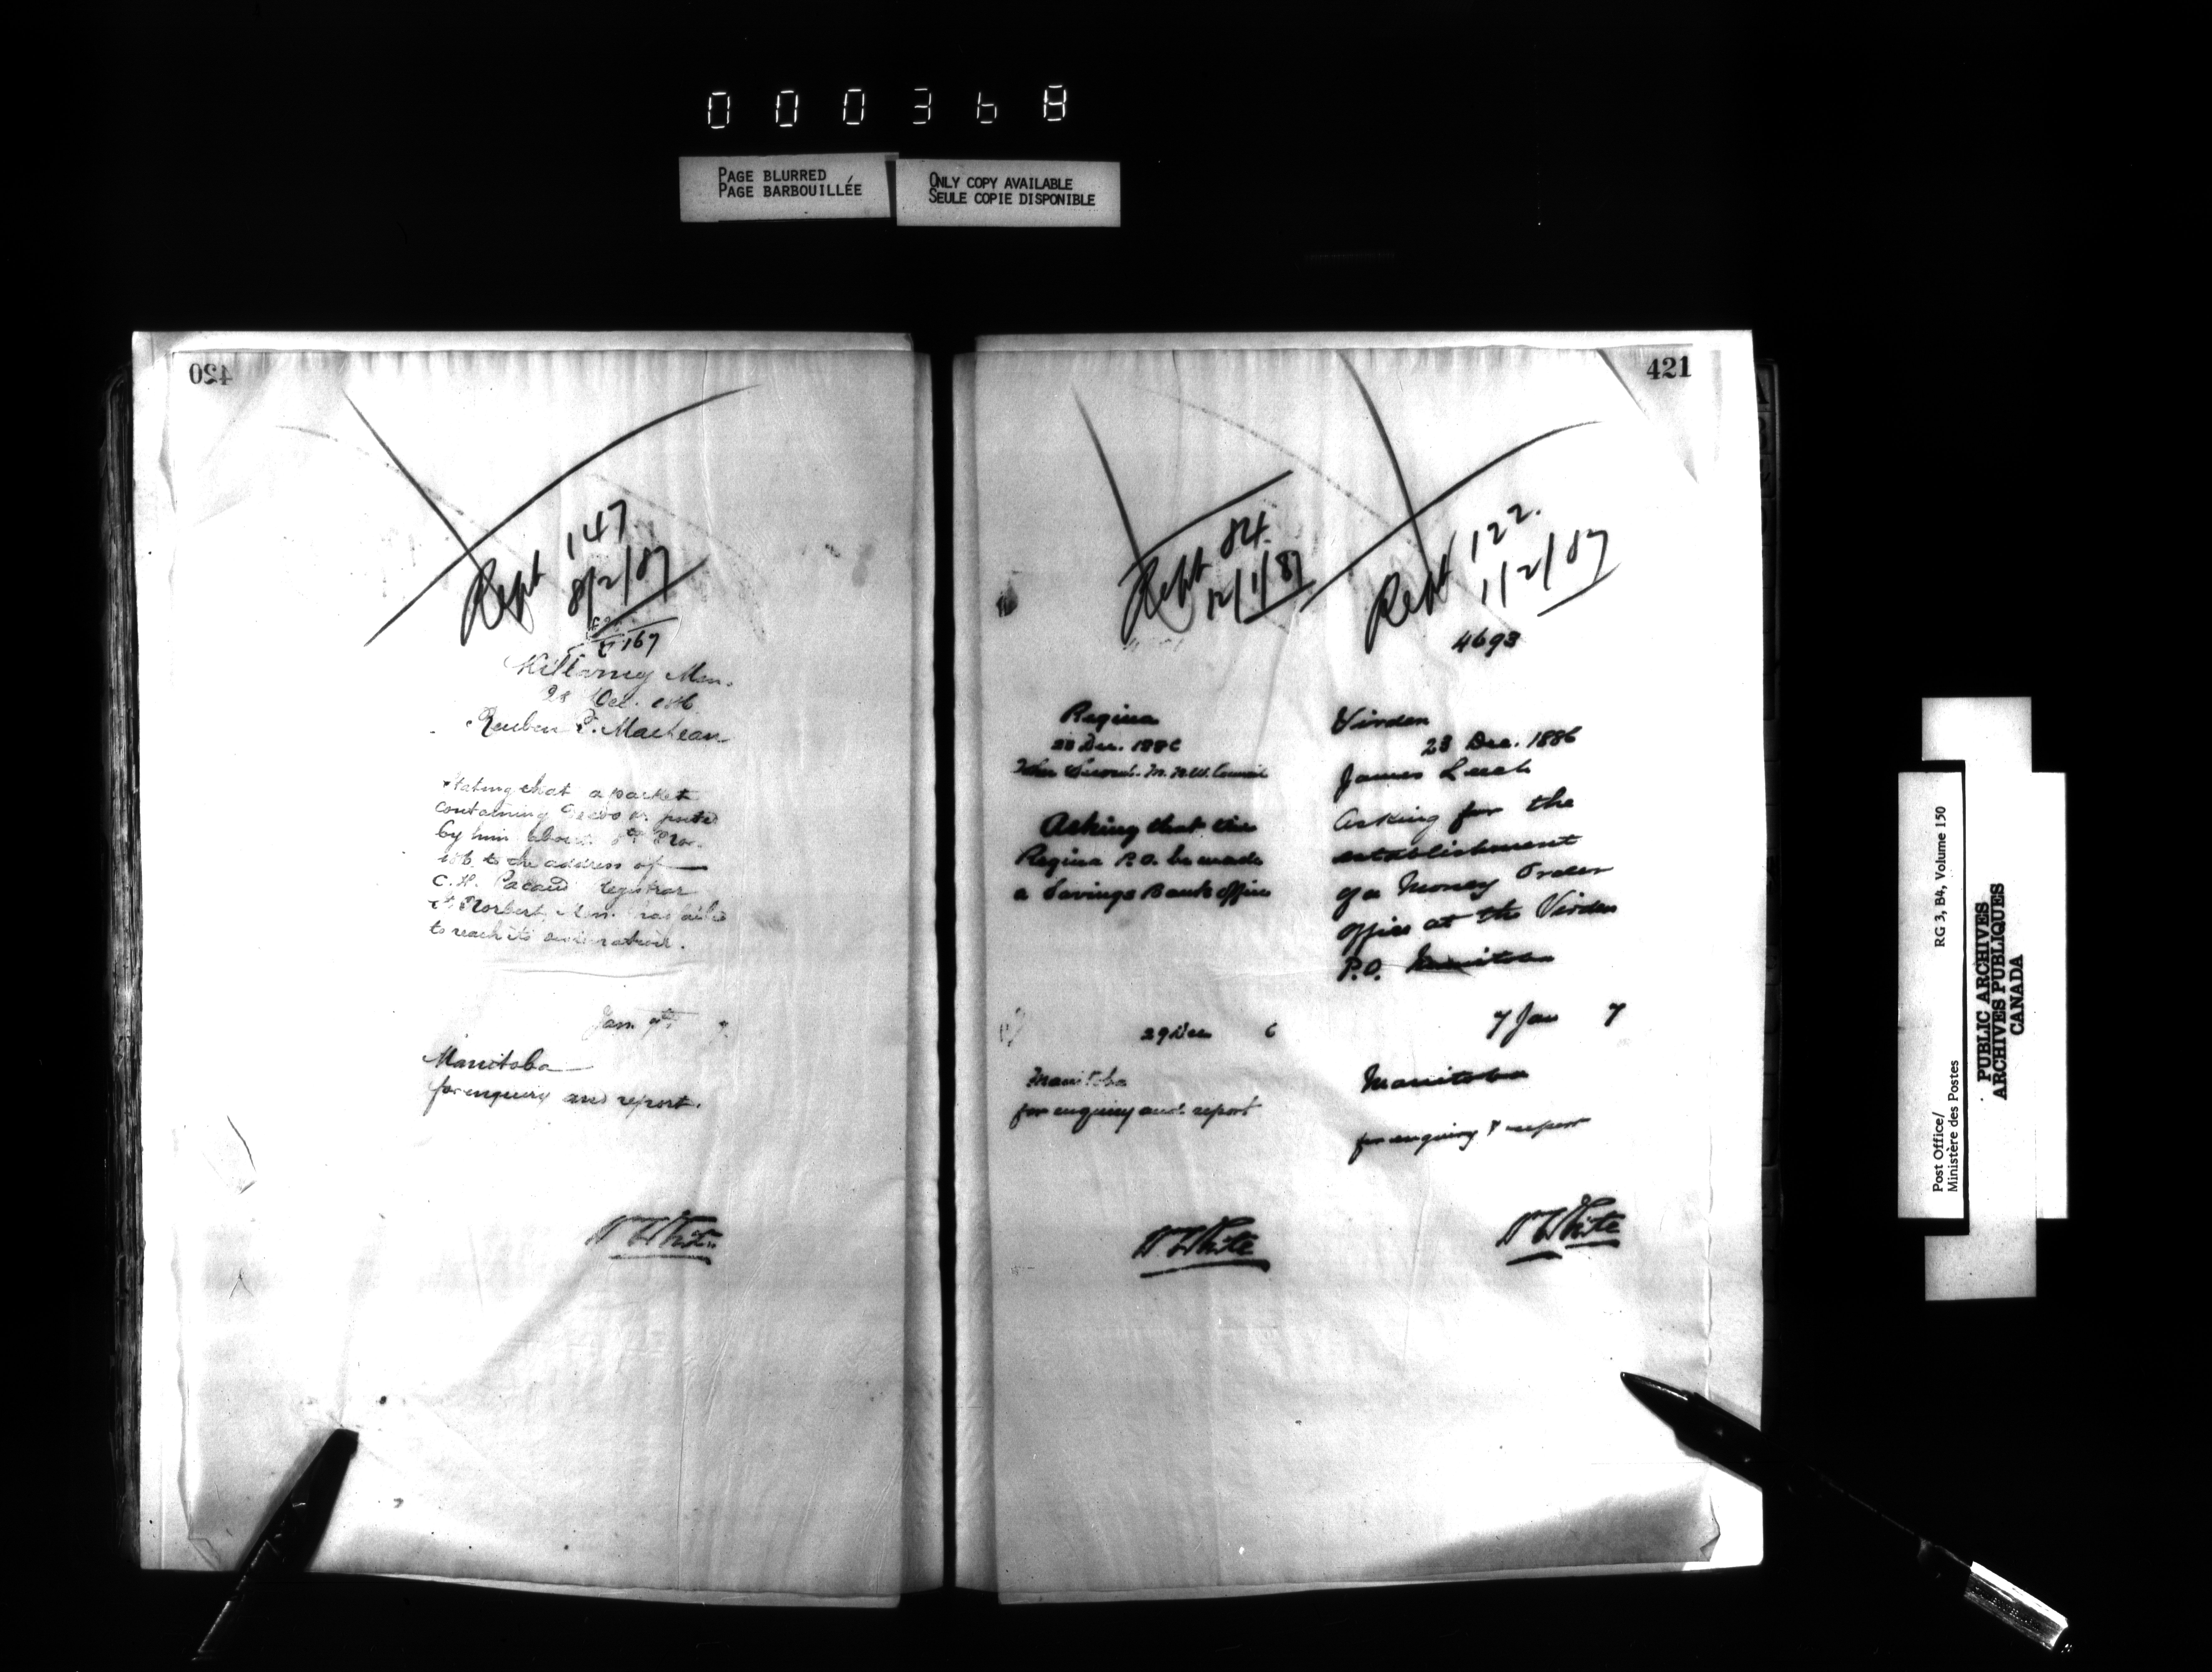 000368
PAGE BLURRED
PAGE BARBOUILLÉE
ONLY COPY AVAILABLE
SEULE COPIE DISPONIBLE
420
Rept 147
8/2/87
167
Killarney Man.
28 Dec.
Reuben
Stating that a packet
containing
by him about
to the address of
C. H. Pacaud registrar
St Norbert, Man. has failed
to reach its destination.
Jan 7th 7
Manitoba
for enquiry and report.
W White
421
Rept 84.
12/1/87
Regina
28 Dec. 1886
N.W. Council
Asking that the
Regina P.O. be made
a Savings Bank Office
29 Dec 6
Manitoba
for enquiry and report
W White
Rept 122.
1/2/87
4693
Virden
23 Dec. 1886
James Leech
Asking for the
establishment
of a Money Order
Office at the Virden
P.O. Manitoba
7 Jan 7
Manitoba
for enquiry & report
W White
Post Office/
Ministère des Postes
RG 3, B4, Volume 150
PUBLIC ARCHIVES
ARCHIVES PUBLIQUES
CANADA